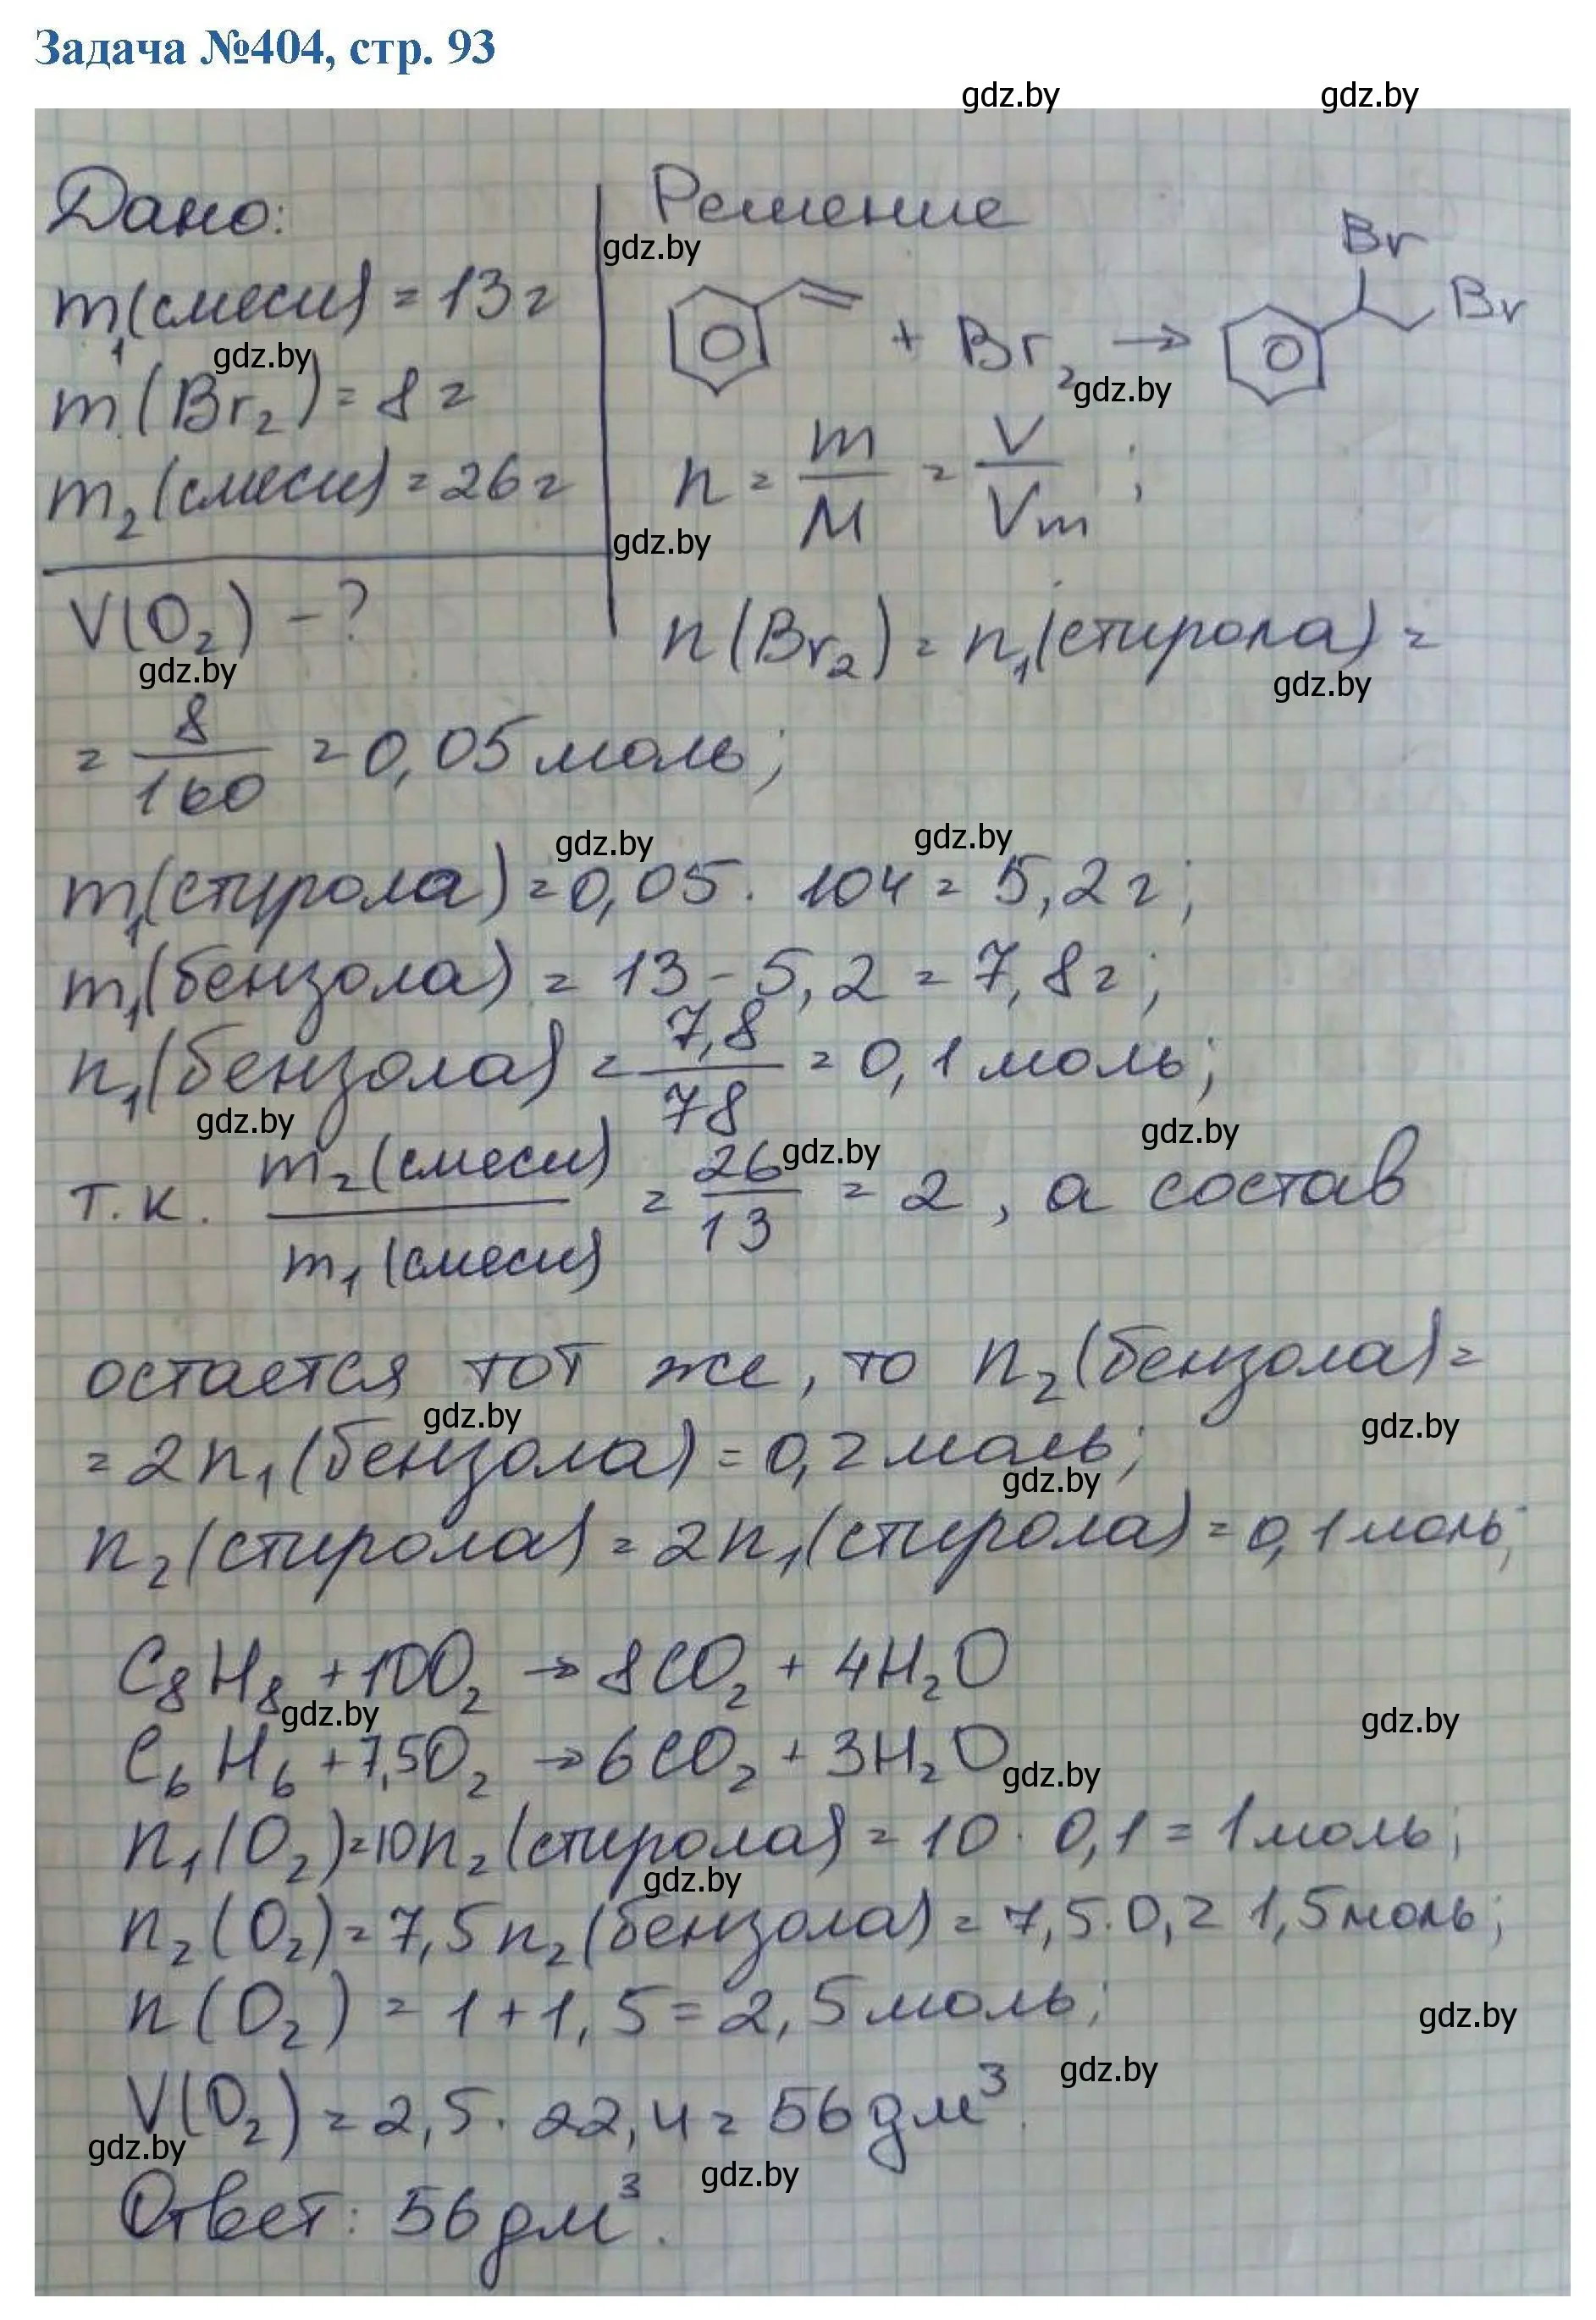 Задача №404, стр. 93
gdz.by gdz.by
Дано:
m₁(смеси) = 13 г
gdz.by
m(Br₂) = 8 г
m₂(смеси) = 26 г
V(O₂) - ?
gdz.by
Решение
gdz.by
Br
Br
+ Br₂ →
gdz.by
n = m/M = V/Vm ;
gdz.by
n(Br₂) = n₁(стирола) =
gdz.by
= 8/160 = 0,05 моль;
gdz.by gdz.by
m₁(стирола) = 0,05 · 104 = 5,2 г;
m₁(бензола) = 13 - 5,2 = 7,8 г;
n₁(бензола) = 7,8/78 = 0,1 моль;
gdz.by gdz.by gdz.by
т.к. m₂(смеси)/m₁(смеси) = 26/13 = 2, а состав
остается тот же, то n₂(бензола) =
gdz.by gdz.by
= 2n₁(бензола) = 0,2 моль;
gdz.by
n₂(стирола) = 2n₁(стирола) = 0,1 моль;
C₈H₈ + 10O₂ → 8CO₂ + 4H₂O
gdz.by gdz.by
C₆H₆ + 7,5O₂ → 6CO₂ + 3H₂O
gdz.by
n₁(O₂) = 10n₂(стирола) = 10 · 0,1 = 1 моль;
gdz.by
n₂(O₂) = 7,5n₂(бензола) = 7,5 · 0,2 1,5 моль;
n(O₂) = 1 + 1,5 = 2,5 моль;
gdz.by
gdz.by
V(O₂) = 2,5 · 22,4 = 56 дм³.
gdz.by
gdz.by
Ответ: 56 дм³.